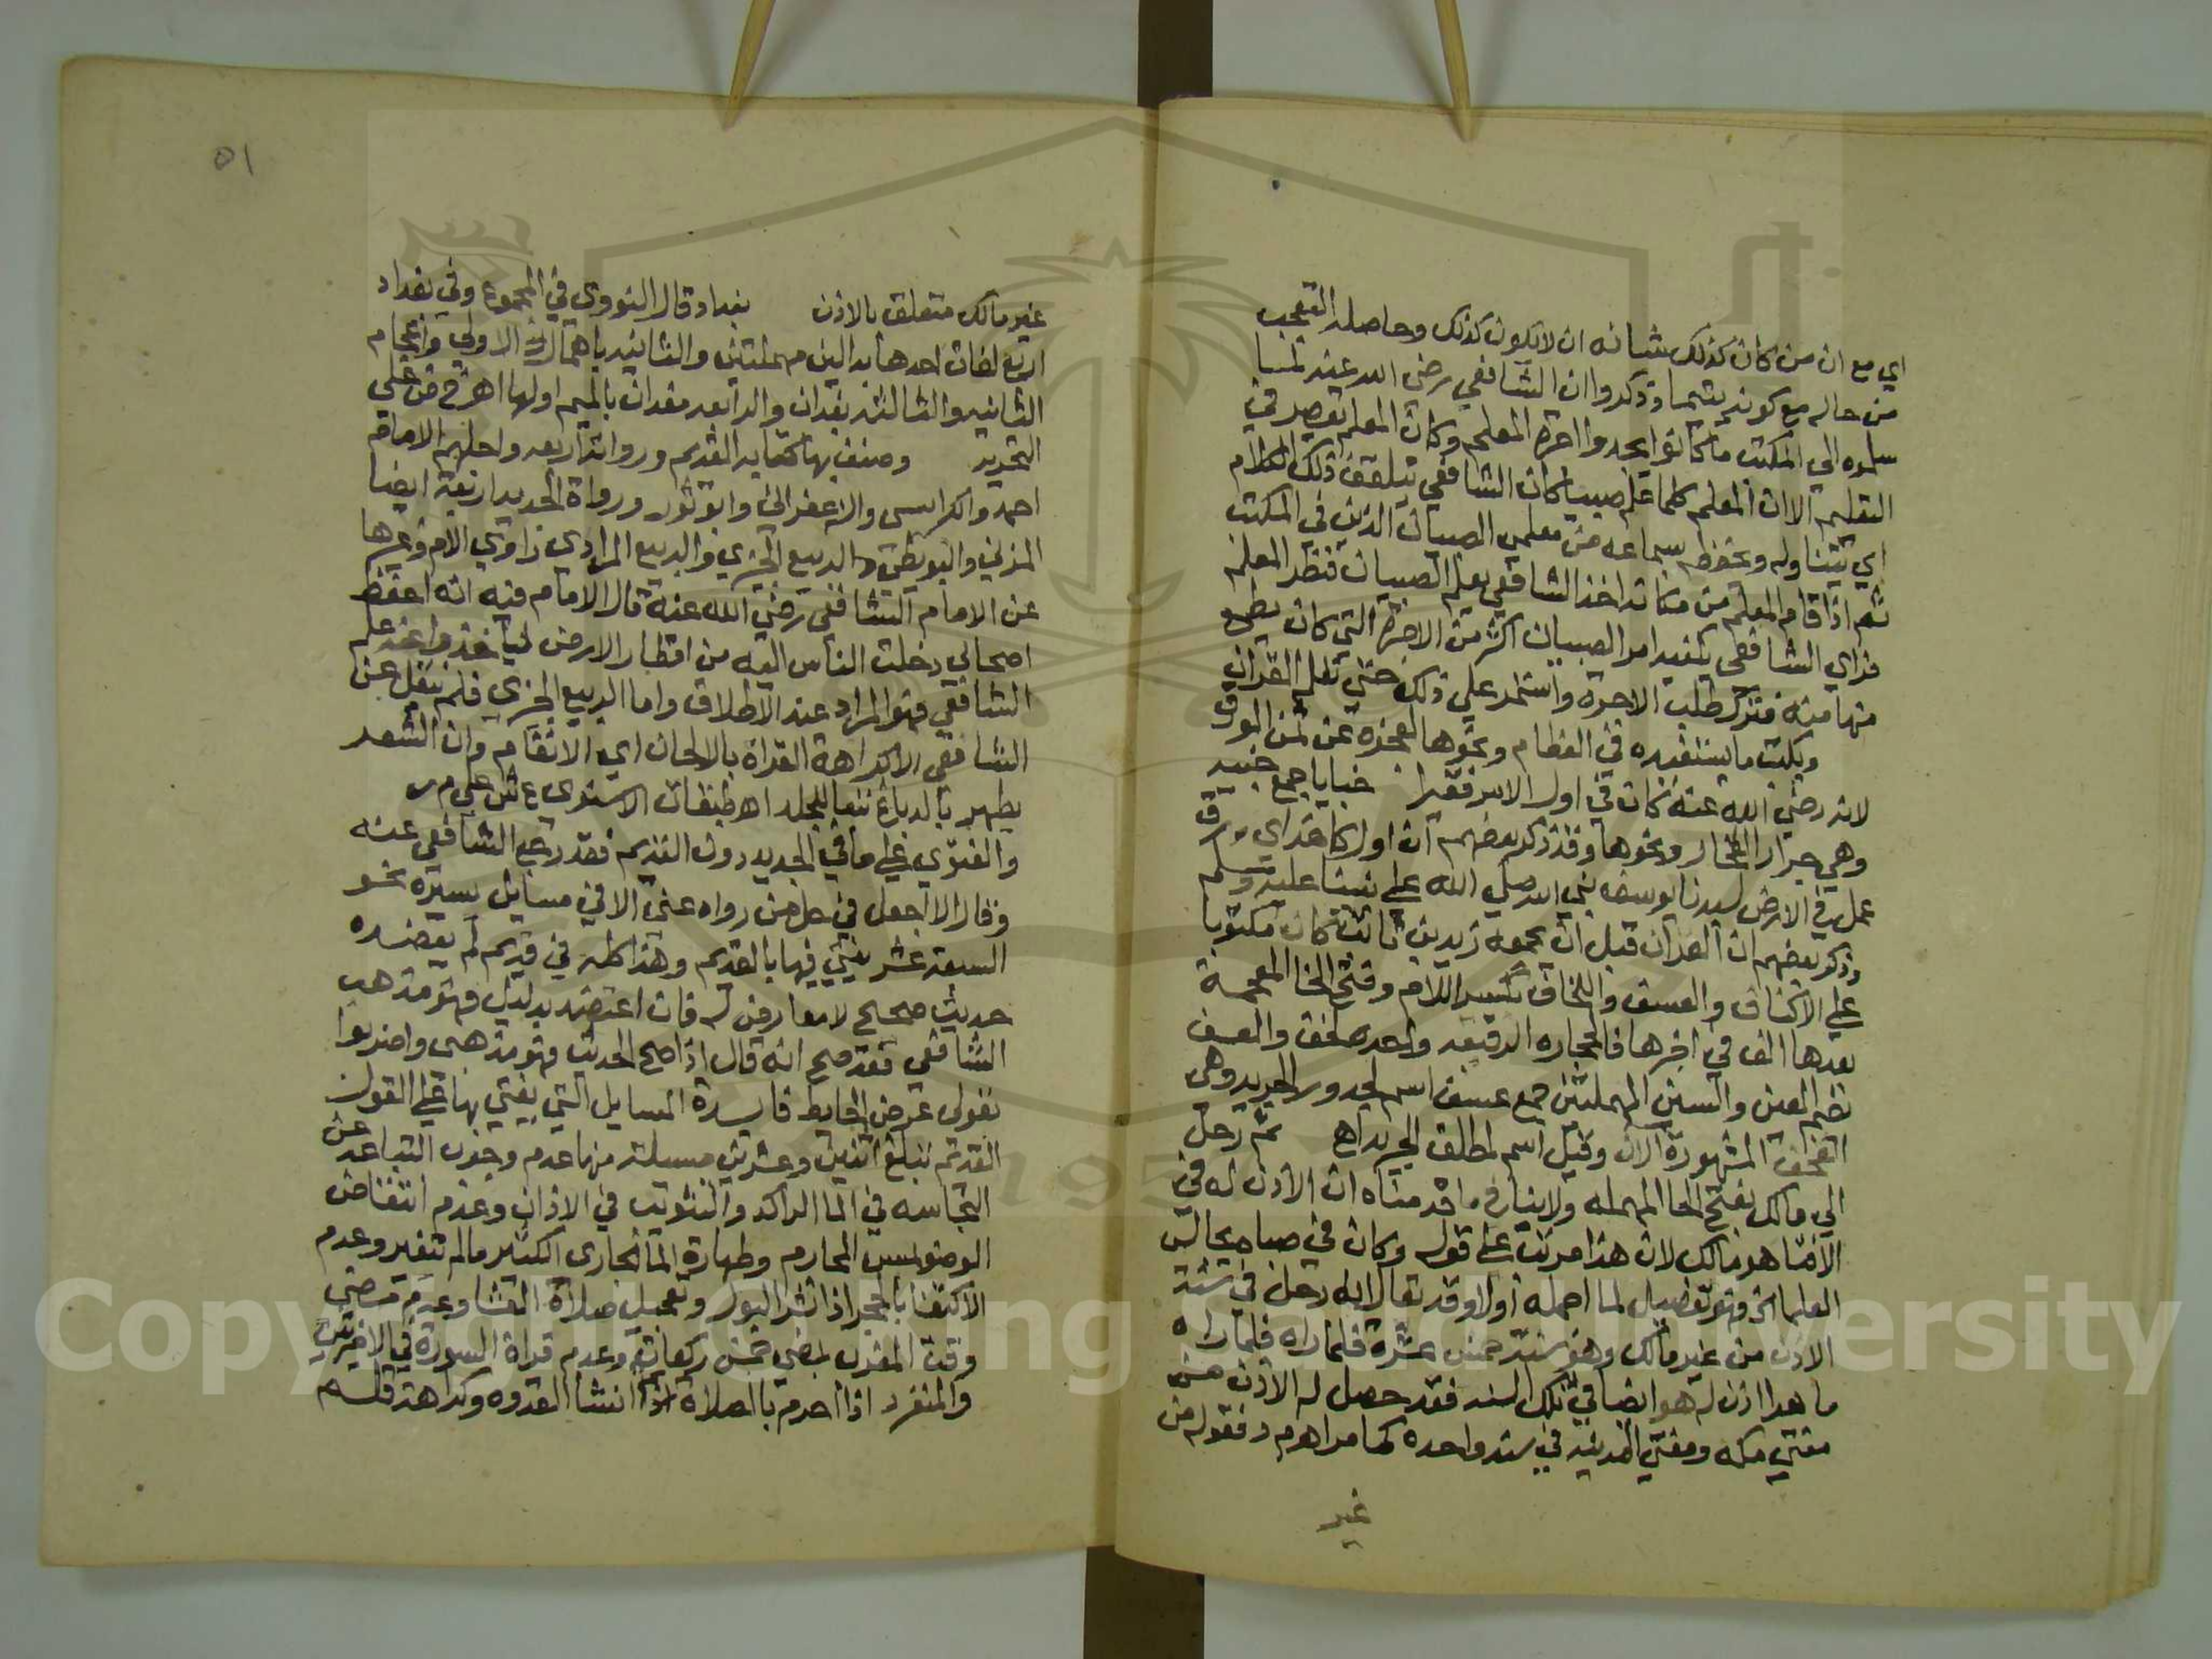 اي مع ان من كان كذلك شانه ان لا يكون كذلك وحاصله التعجب
من حاله مع كونه يتيما وذكروا ان الشافعي رضي الله عنه لما
سلموه الي المكتب ما كانوا يجدوا اجرة المعلم وكان المعلم يقصر في
التعليم الا ان المعلم كلما علم صبيا كان الشافعي يتلقف ذلك الكلام
اي يتناوله ويحفظه بسماعه من معلمي الصبيان الذين في المكتب
ثم اذا قام المعلم من مكانه اخذ الشافعي يعلم الصبيان فنظر المعلم
فراي الشافعي يكفيه امر الصبيان اكثر من الاجرة التي كان يطمع
فيها منه فترك طلب الاجرة واستمر علي ذلك حتي تعلم القران
ويكتب ما يستفيده في العظام ونحوها لعجزه عن ثمن الورق
لانه رضي الله عنه كان في اول الامر فقيرا خبايا جمع خبيه
وهي جرار الفخار ونحوها وقد ذكر بعضهم ان اول كاغد اي ورق
عمل في الارض لسيدنا يوسف نبي الله صلي الله علي نبينا عليه وسلم
وذكر بعضهم ان القران قبل ان يجمعه زيد بن ثابت كان مكتوبا
علي الاكتاف والعسف واللخاف بكسر اللام وفتح الخا المعجمة
بعدها الف في اخرها فا الحجاره الدقيقه واحده لخفة والعسف
بضم العين والسين المهملتين جمع عسف اسم لجدور الجريد وهي
القحف المشهورة الان وقيل اسم لمطلق الجريد اهـ ثم رحل
الي مالك بفتح الحا المهمله ولا ينافي ما قدمناه ان الاذن له في
الافتا هو مالك لان هذا مرتب علي قوله وكان في صباه يجالس
العلما الخ فهو تفصيل لما اجمله اولا وقد يقال انه رحل في سنة
الاذن من غير مالك وهو سنة خمس عشرة فلما راه فلما راه
ماهرا اذن له هو ايضا في تلك السنه فقد حصل له الاذن من
مفتي مكه ومفتي المدينه في سنه واحده كما مر اهـ م د فقوله من
غير
٥١
غير مالك متعلق بالاذن بغداد قال النووي في المجموع وفي بغداد
اربع لغات احدها بدالين مهملتين والثانيه باهمال الاولي واعجام
الثانيه والثالثه بغدان والرابعه مغدان بالميم اولها اهـ خ ض علي
التحرير وصنف بها كتابه القديم ورواته اربعه واجلهم الامام
احمد والكرابيسي والزعفراني وابو ثور ورواة الجديد اربعة ايضا
المزني والبويطي والربيع الجيزي والربيع المرادي راوي الام وغيرها
عن الامام الشافعي رضي الله عنه قال الامام فيه انه احفظ
اصحابي رحلت الناس اليه من اقطار الارض لياخذوا عنه علم
الشافعي فهو المراد عند الاطلاق واما الربيع الجيزي فلم ينقل عن
الشافعي الا كراهة القراة بالالحان اي الانغام وان الشعر
يطهر بالدباغ تبعا للجلد اهـ طبقات الاسنوي ع ش علي م ر
والفتوي علي ما في الجديد دون القديم فقد رجع الشافعي عنه
وقال لا اجعل في حل من رواه عني الا في مسايل يسيره نحو
السبعة عشر يفتي فيها بالقديم وهذا كله في قديم لم يعضده
حديث صحيح لا معارض له فان اعتضد بدليل فهو مذهب
الشافعي فقد صح انه قال اذا صح الحديث فهو مذهبي واضربوا
بقولي عرض الحايط فايدة المسايل التي يفتي بها علي القول
القديم تبلغ اثنين وعشرين مسيلة منها عدم وجوب التباعد عن
النجاسه في الما الراكد والتثويب في الاذان وعدم انتقاض
الوضو بلمس المحارم وطهارة الما الجاري الكثير ما لم يتغير وعدم
الاكتفا بالحجر اذا انتشر البول وتعجيل صلاة العشا وعدم مضي
وقت المغرب بمضي خمس ركعات وعدم قراة السورة في الاخيرتين
والمنفرد اذا احرم بالصلاة ثم انشا القدوه وكراهة قلم